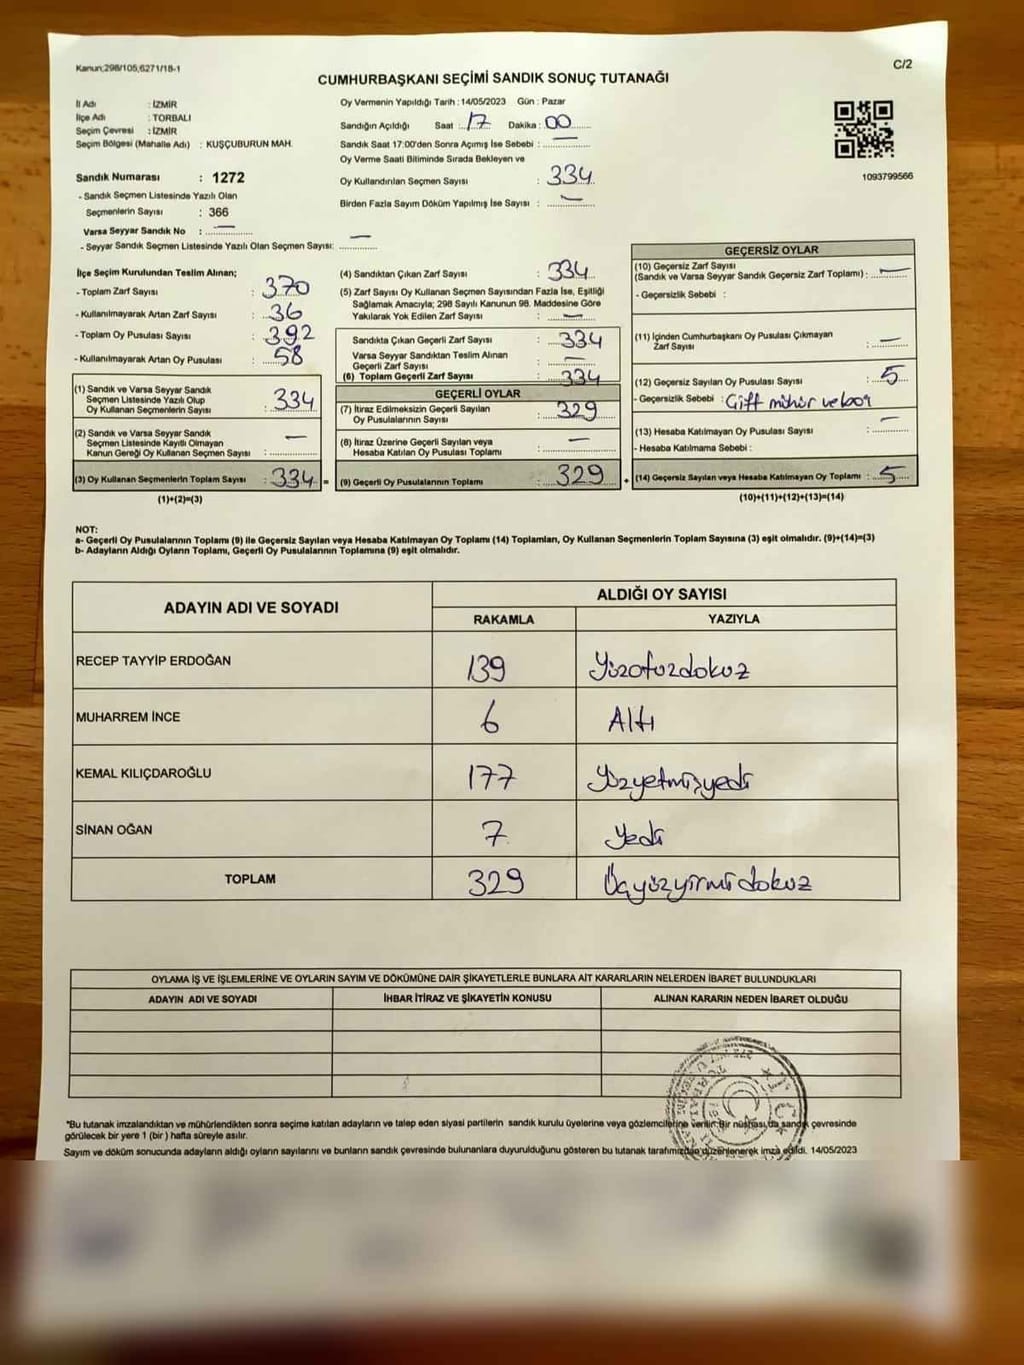 Kanun;298/105,6271/18-1
C/2
CUMHURBAŞKANI SEÇİMİ SANDIK SONUÇ TUTANAĞI
İl Adı : İZMİR
İlçe Adı : TORBALI
Seçim Çevresi : İZMİR
Seçim Bölgesi (Mahalle Adı) : KUŞÇUBURUN MAH.
Sandık Numarası : 1272
- Sandık Seçmen Listesinde Yazılı Olan
Seçmenlerin Sayısı : 366
Varsa Seyyar Sandık No : —
- Seyyar Sandık Seçmen Listesinde Yazılı Olan Seçmen Sayısı: —
Oy Vermenin Yapıldığı Tarih : 14/05/2023 Gün : Pazar
Sandığın Açıldığı Saat : 17 Dakika : 00
Sandık Saat 17:00'den Sonra Açımış İse Sebebi : —
Oy Verme Saati Bitiminde Sırada Bekleyen ve
Oy Kullandırılan Seçmen Sayısı : 334
Birden Fazla Sayım Döküm Yapılmış İse Sayısı : —
1093799566
İlçe Seçim Kurulundan Teslim Alınan;
- Toplam Zarf Sayısı : 370
- Kullanılmayarak Artan Zarf Sayısı : 36
- Toplam Oy Pusulası Sayısı : 392
- Kullanılmayarak Artan Oy Pusulası : 58
(1) Sandık ve Varsa Seyyar Sandık
Seçmen Listesinde Yazılı Olup
Oy Kullanan Seçmenlerin Sayısı : 334
(2) Sandık ve Varsa Seyyar Sandık
Seçmen Listesinde Kayıtlı Olmayan
Kanun Gereği Oy Kullanan Seçmen Sayısı : —
(3) Oy Kullanan Seçmenlerin Toplam Sayısı : 334 =
(1)+(2)=(3)
(4) Sandıktan Çıkan Zarf Sayısı : 334
(5) Zarf Sayısı Oy Kullanan Seçmen Sayısından Fazla İse, Eşitliği
Sağlamak Amacıyla; 298 Sayılı Kanunun 98. Maddesine Göre
Yakılarak Yok Edilen Zarf Sayısı : —
Sandıkta Çıkan Geçerli Zarf Sayısı : 334
Varsa Seyyar Sandıktan Teslim Alınan
Geçerli Zarf Sayısı : —
(6) Toplam Geçerli Zarf Sayısı : 334
GEÇERLİ OYLAR
(7) İtiraz Edilmeksizin Geçerli Sayılan
Oy Pusulalarının Sayısı : 329
(8) İtiraz Üzerine Geçerli Sayılan veya
Hesaba Katılan Oy Pusulası Toplamı : —
(9) Geçerli Oy Pusulalarının Toplamı : 329 +
GEÇERSİZ OYLAR
(10) Geçersiz Zarf Sayısı
(Sandık ve Varsa Seyyar Sandık Geçersiz Zarf Toplamı) : —
- Geçersizlik Sebebi :
(11) İçinden Cumhurbaşkanı Oy Pusulası Çıkmayan
Zarf Sayısı : —
(12) Geçersiz Sayılan Oy Pusulası Sayısı : 5
- Geçersizlik Sebebi : Çift mühür ve
(13) Hesaba Katılmayan Oy Pusulası Sayısı : —
- Hesaba Katılmama Sebebi :
(14) Geçersiz Sayılan veya Hesaba Katılmayan Oy Toplamı : 5
(10)+(11)+(12)+(13)=(14)
NOT:
a- Geçerli Oy Pusulalarının Toplamı (9) ile Geçersiz Sayılan veya Hesaba Katılmayan Oy Toplamı (14) Toplamları, Oy Kullanan Seçmenlerin Toplam Sayısına (3) eşit olmalıdır. (9)+(14)=(3)
b- Adayların Aldığı Oyların Toplamı, Geçerli Oy Pusulalarının Toplamına (9) eşit olmalıdır.
ADAYIN ADI VE SOYADI
ALDIĞI OY SAYISI
RAKAMLA YAZIYLA
RECEP TAYYİP ERDOĞAN 139 Yüzotuzdokuz
MUHARREM İNCE 6 Altı
KEMAL KILIÇDAROĞLU 177 Yüzyetmişyedi
SİNAN OĞAN 7 Yedi
TOPLAM 329 Üçyüzyirmidokuz
OYLAMA İŞ VE İŞLEMLERİNE VE OYLARIN SAYIM VE DÖKÜMÜNE DAİR ŞİKAYETLERLE BUNLARA AİT KARARLARIN NELERDEN İBARET BULUNDUKLARI
ADAYIN ADI VE SOYADI İHBAR İTİRAZ VE ŞİKAYETİN KONUSU ALINAN KARARIN NEDEN İBARET OLDUĞU
*Bu tutanak imzalandıktan ve mühürlendikten sonra seçime katılan adayların ve talep eden siyasi partilerin sandık kurulu üyelerine veya gözlemcilerine verilir.Bir nüshası da sandık çevresinde
görülecek bir yere 1 (bir ) hafta süreyle asılır.
Sayım ve döküm sonucunda adayların aldığı oyların sayılarını ve bunların sandık çevresinde bulunanlara duyurulduğunu gösteren bu tutanak tarafımızdan düzenlenerek imza edildi. 14/05/2023